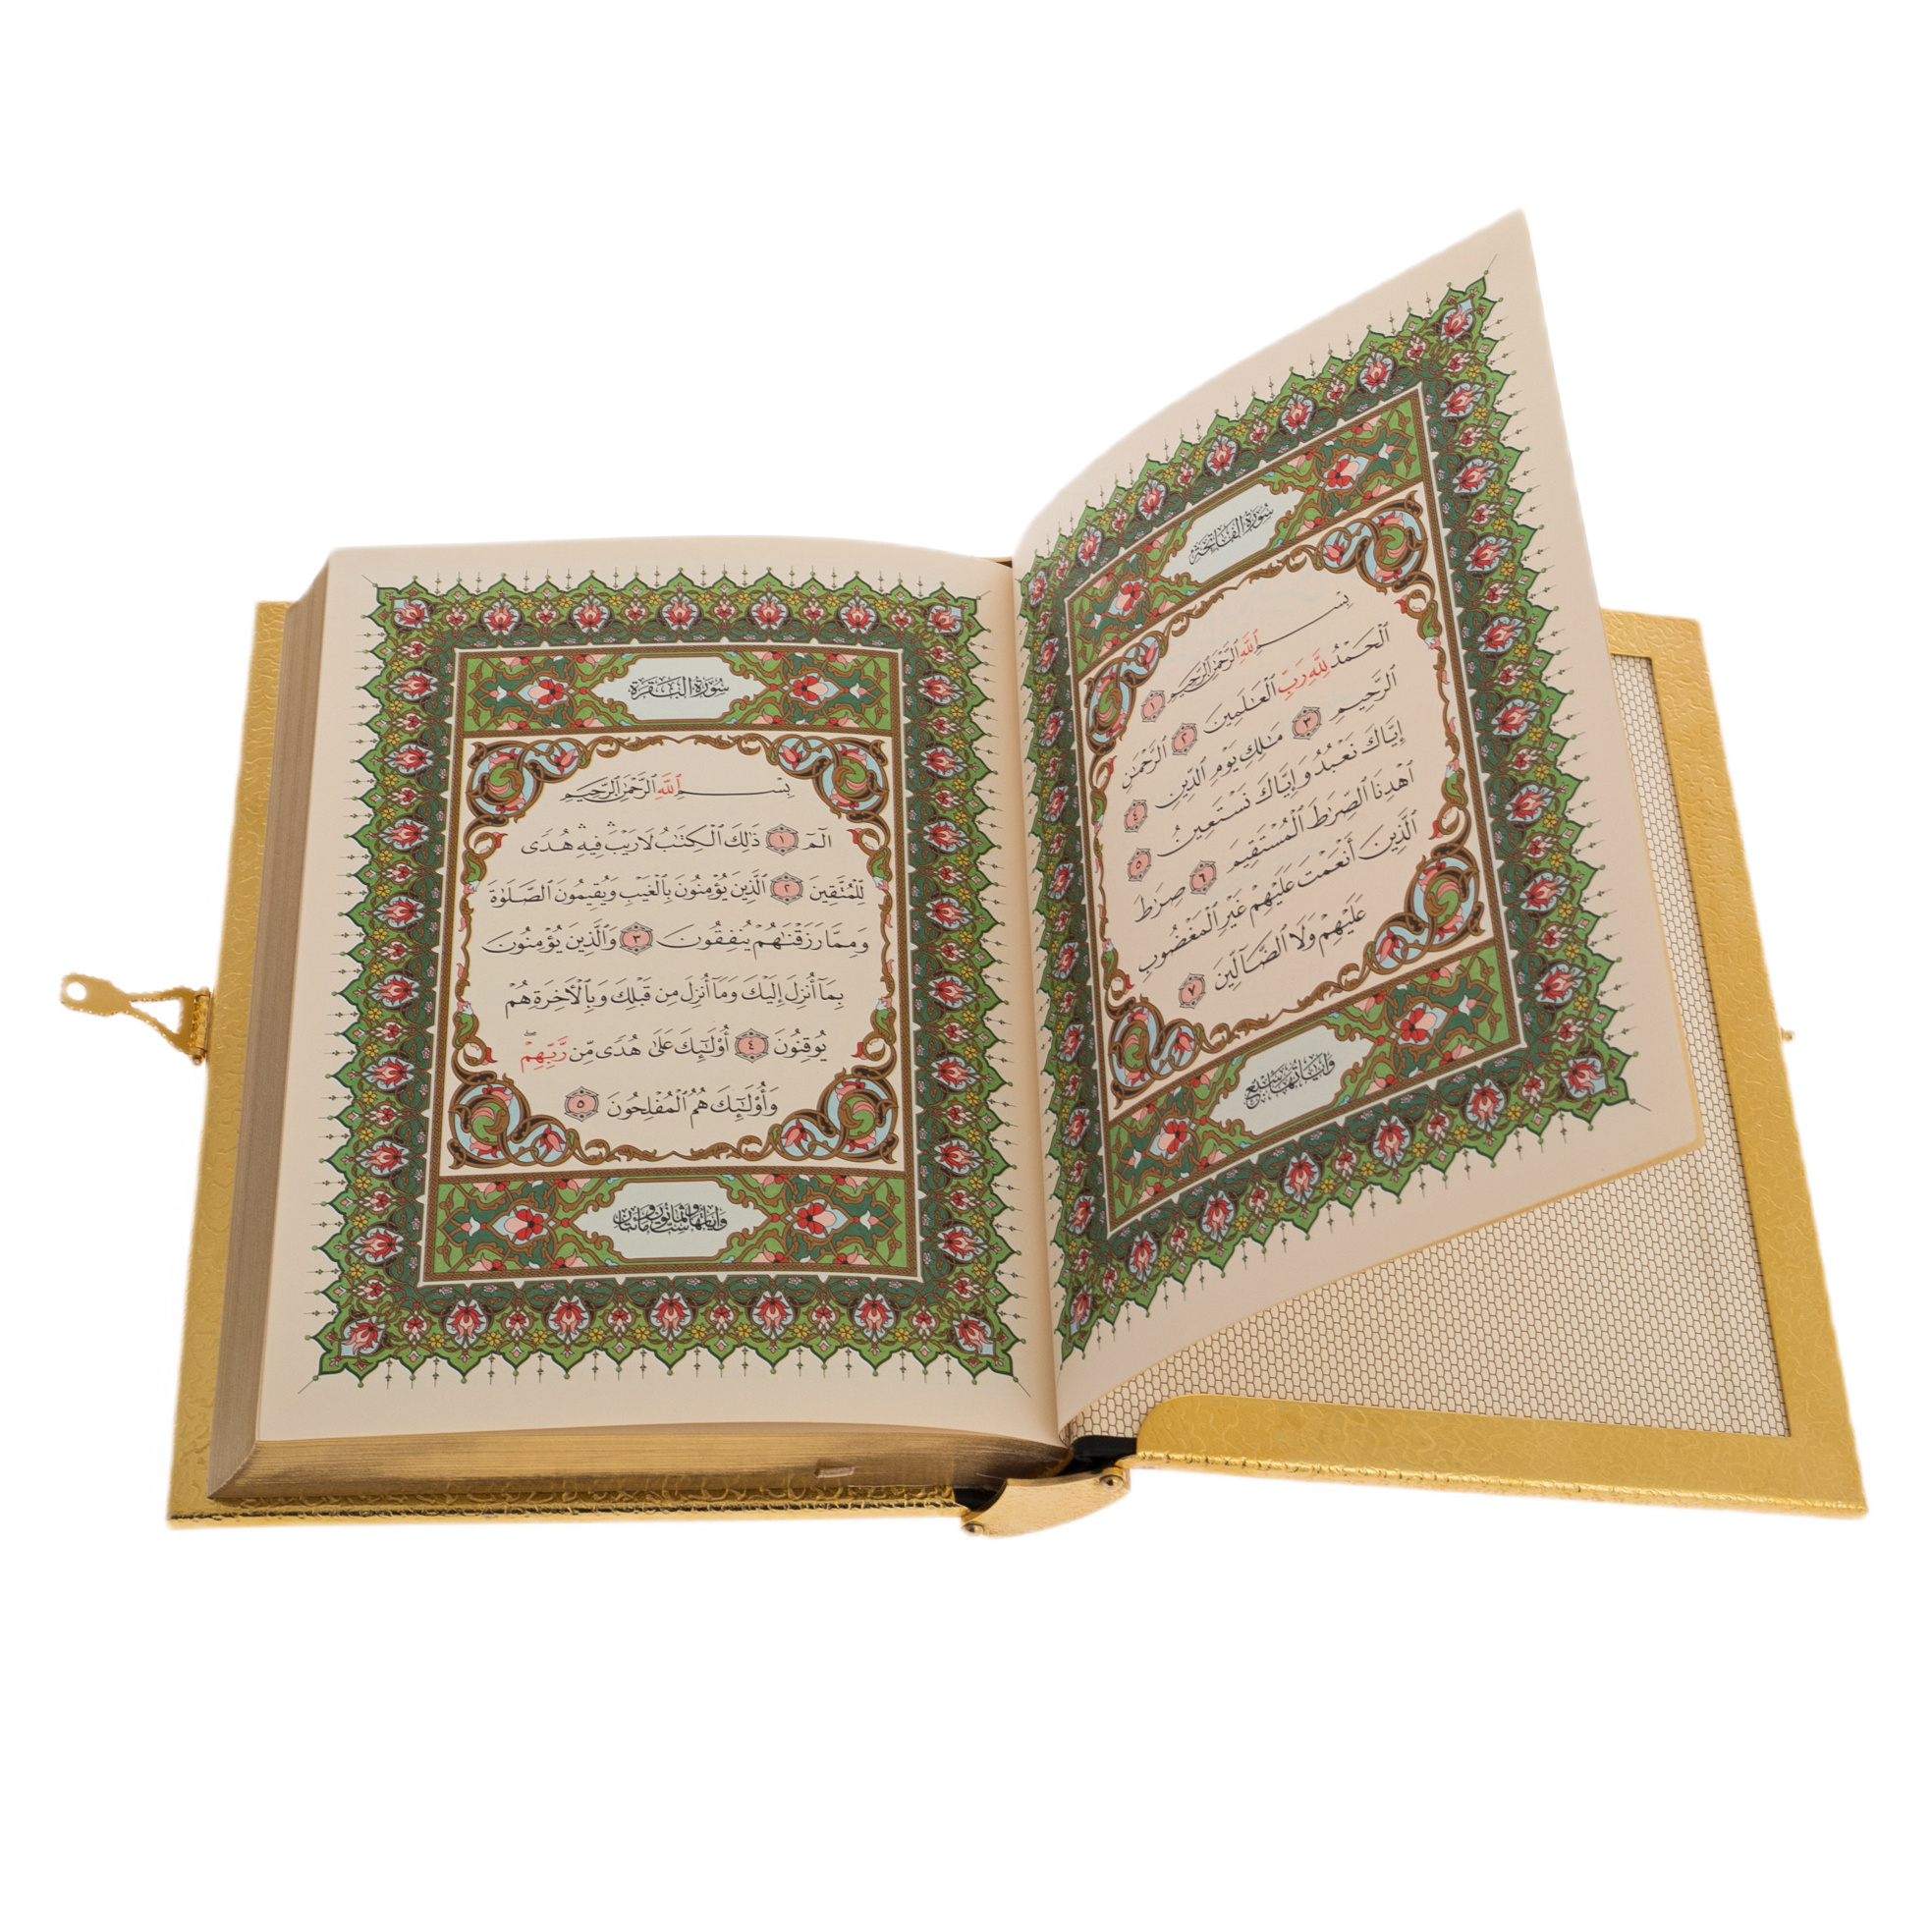 سُورَةُ الفَاتِحَةِ
بِسْمِ ٱللَّهِ ٱلرَّحْمَٰنِ ٱلرَّحِيمِ ١
ٱلْحَمْدُ لِلَّهِ رَبِّ ٱلْعَٰلَمِينَ ٢ ٱلرَّحْمَٰنِ
ٱلرَّحِيمِ ٣ مَٰلِكِ يَوْمِ ٱلدِّينِ ٤
إِيَّاكَ نَعْبُدُ وَإِيَّاكَ نَسْتَعِينُ ٥
ٱهْدِنَا ٱلصِّرَٰطَ ٱلْمُسْتَقِيمَ ٦ صِرَٰطَ
ٱلَّذِينَ أَنْعَمْتَ عَلَيْهِمْ غَيْرِ ٱلْمَغْضُوبِ
عَلَيْهِمْ وَلَا ٱلضَّآلِّينَ ٧
وَآيَاتُهَا سَبْعٌ
سُورَةُ البَقَرَةِ
بِسْمِ ٱللَّهِ ٱلرَّحْمَٰنِ ٱلرَّحِيمِ
الٓمٓ ١ ذَٰلِكَ ٱلْكِتَٰبُ لَا رَيْبَ ۛ فِيهِ ۛ هُدًى
لِّلْمُتَّقِينَ ٢ ٱلَّذِينَ يُؤْمِنُونَ بِٱلْغَيْبِ وَيُقِيمُونَ ٱلصَّلَوٰةَ
وَمِمَّا رَزَقْنَٰهُمْ يُنفِقُونَ ٣ وَٱلَّذِينَ يُؤْمِنُونَ
بِمَآ أُنزِلَ إِلَيْكَ وَمَآ أُنزِلَ مِن قَبْلِكَ وَبِٱلْأَخِرَةِ هُمْ
يُوقِنُونَ ٤ أُو۟لَٰٓئِكَ عَلَىٰ هُدًى مِّن رَّبِّهِمْ ۖ
وَأُو۟لَٰٓئِكَ هُمُ ٱلْمُفْلِحُونَ ٥
وَآيَاتُهَا سِتٌّ وَثَمَانُونَ وَمِائَتَانِ